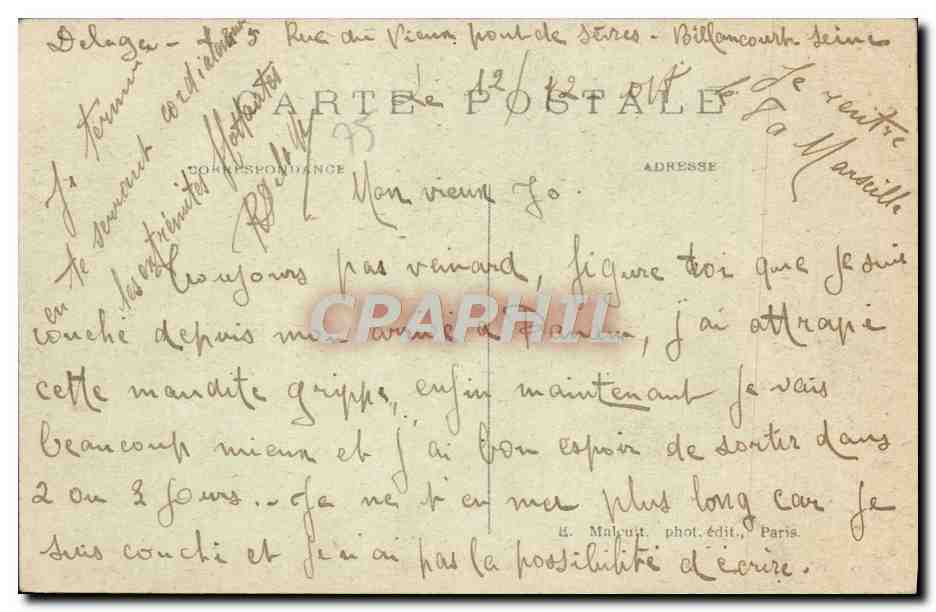 Delage - 5 Rue du Vieux pont de Sèvres - Billancourt Seine
CARTE POSTALE
Le 12/12
Je rentre
le
Marseille
75
CORRESPONDANCE
ADRESSE
Mon vieux Jo.
Toujours pas veinard, figure toi que je suis
couché depuis mon arrivé à j'ai attrapé
CPAPHIL
cette maudite grippe, enfin maintenant je vais
beaucoup mieux et j'ai bon espoir de sortir dans
2 ou 3 jours. - Je ne t'en met plus long car je
E. Malcuit, phot. édit., Paris.
suis couché et je n'ai pas la possibilité d'écrire.
Je termine
en te serrant cordialement
les extrémités flottantes